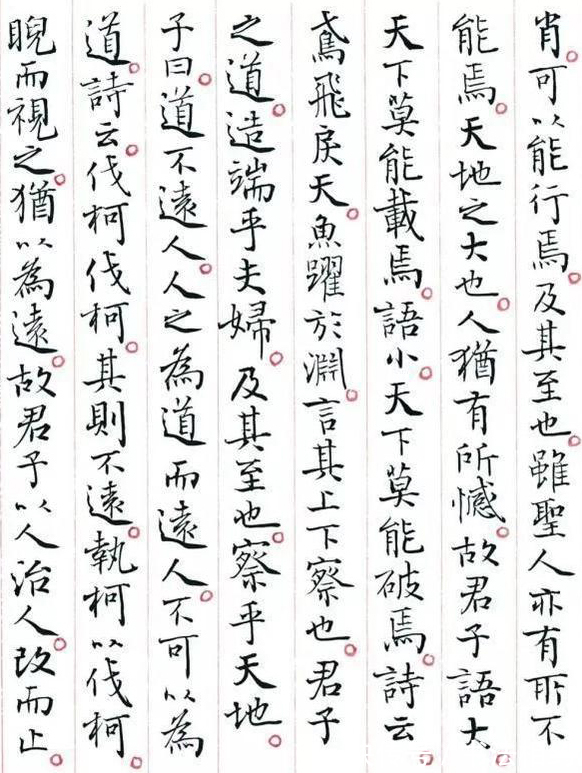 肖。可以能行焉。及其至也。雖聖人亦有所不
能焉。天地之大也。人猶有所憾。故君子語大。
天下莫能載焉。語小。天下莫能破焉。詩云。
鳶飛戾天。魚躍於淵。言其上下察也。君子
之道。造端乎夫婦。及其至也。察乎天地。
子曰。道不遠人。人之為道而遠人。不可以為
道。詩云。伐柯伐柯。其則不遠。執柯以伐柯。
睨而視之。猶以為遠。故君子以人治人。改而止。